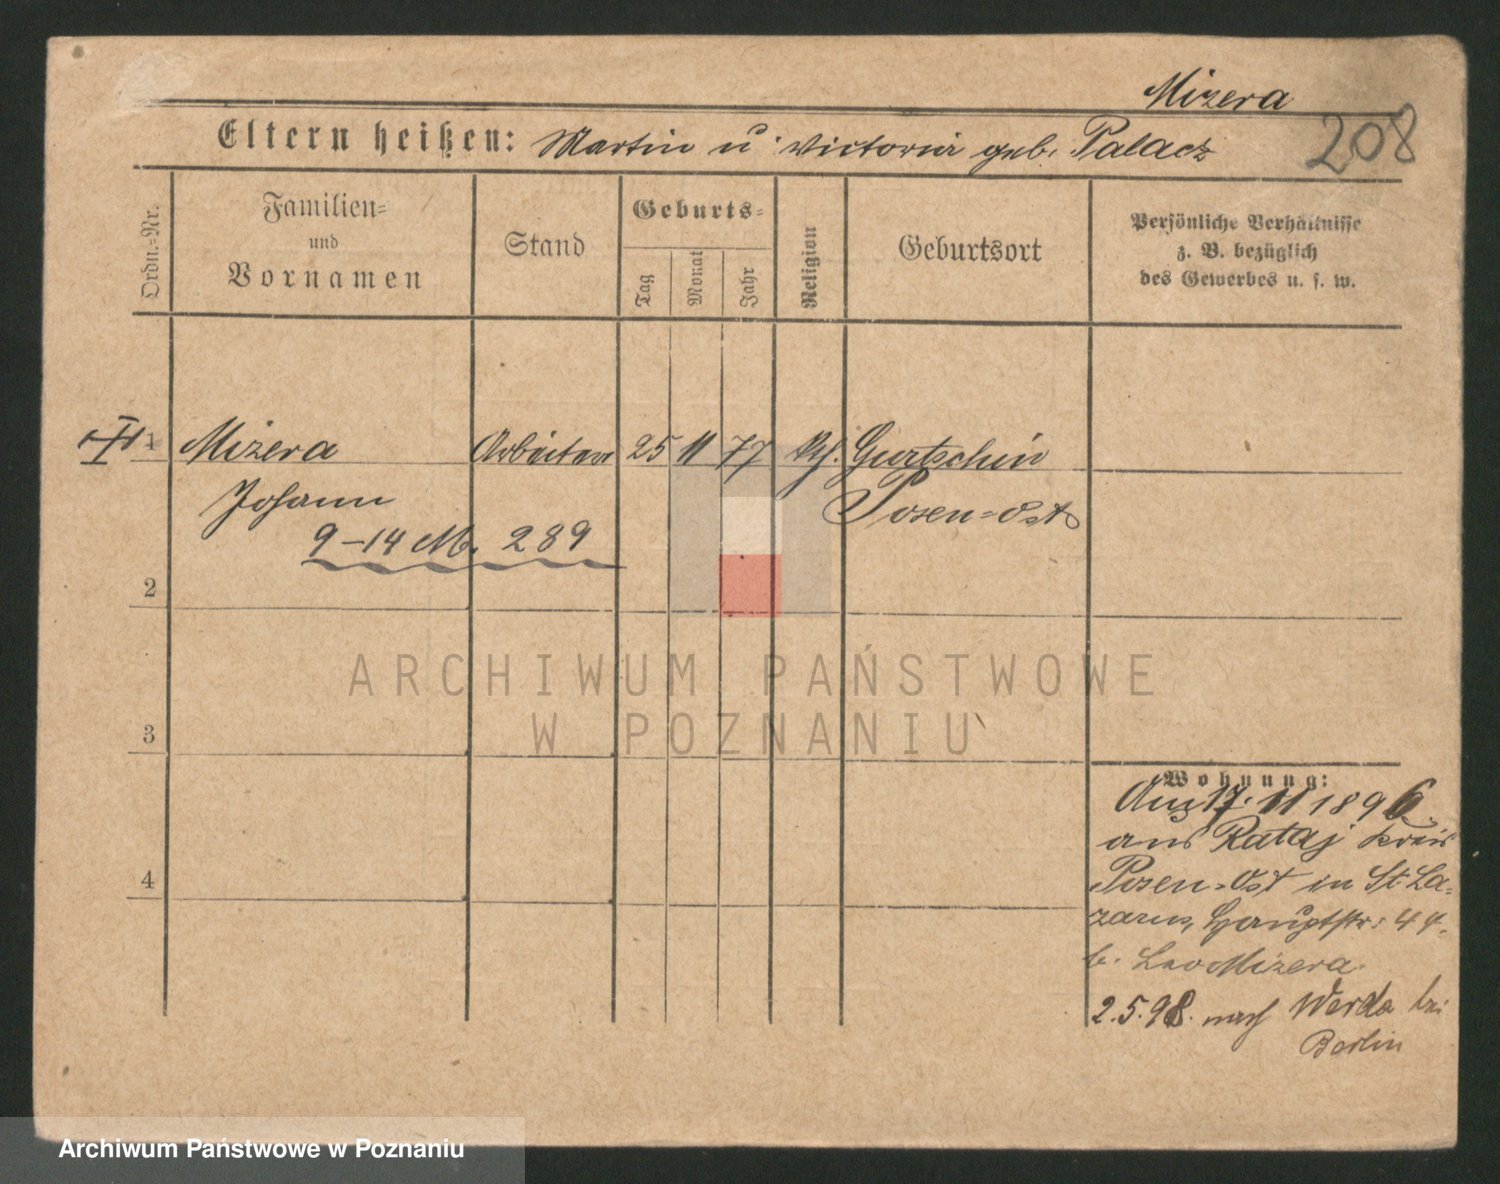 Mizera
208
Eltern heißen: Martin u. Victoria geb. Palacz
Ordn.=Nr.
Familien=
und
Vornamen
Stand
Geburts=
Tag
Monat
Jahr
Religion
Geburtsort
Persönliche Verhältnisse
z. B. bezüglich
des Gewerbes u. s. w.
1 Mizera Arbeiter 25 11 77 kth. Gurtschin
Johann Posen=Ost
9-14 M. 289
2
3
4
ARCHIWUM PAŃSTWOWE
W POZNANIU
Wohnung:
Am 17. 11 1896
aus Rataj Kreis
Posen=Ost in St. La=
zarus, Hauptstr: 44.
b. Leo Mizera.
2.5.98. nach Werda bei
Berlin
Archiwum Państwowe w Poznaniu